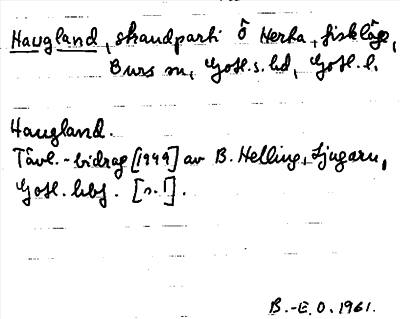 Haugland, strandparti Ö Herta, fiskläge,
Burs sn, Gotl. s. hd, Gotl. l.
Haugland.
Tävl.-bidrag [1949] av B. Helling, Ljugarn,
Gotl. hbf. [s. 1].
B.-E.O. 1961.